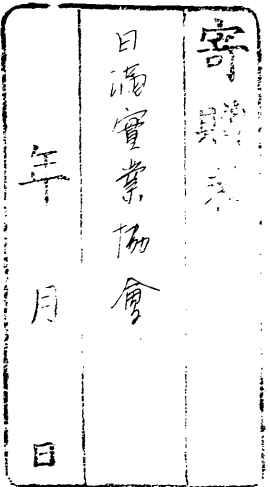 寄贈者
日滿實業協會
年 月 日